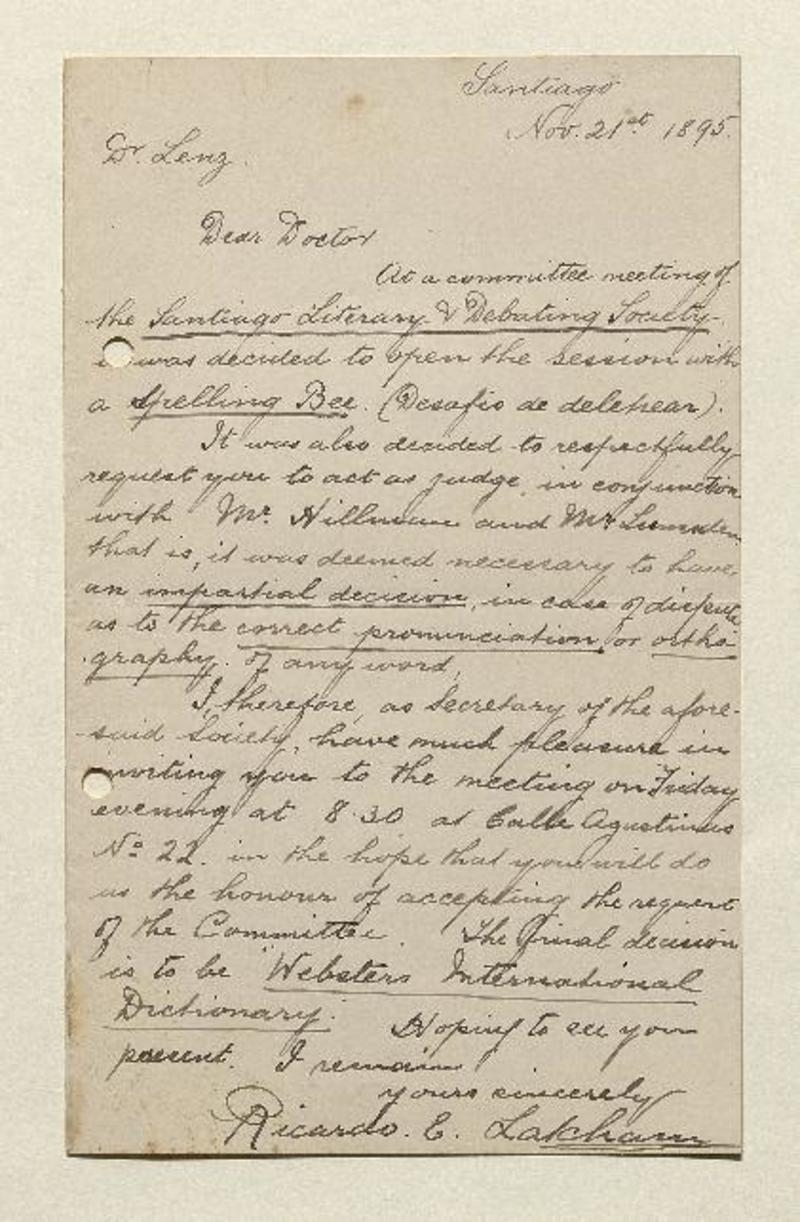 Santiago
Nov. 21st 1895.
Dr. Lenz.
Dear Doctor
At a committee meeting of
the Santiago Literary & Debating Society
was decided to open the session with
a Spelling Bee. (Desafio de deletrear).
It was also decided to respectfully
request you to act as judge, in conjunction
with Mr. Hillman and Mr Lumsden
that is, it was deemed necessary to have
an impartial decision, in case of dispute
as to the correct pronunciation, or ortho
graphy. of any word,
I, therefore, as Secretary of the afore-
said Society, have much pleasure in
inviting you to the meeting on Friday
evening at 8.30 at Calle Agustinas
No 22. in the hope that you will do
us the honour of accepting the request
of the Committee. The final decision
is to be "Websters International
Dictionary." Hoping to see you
present. I remain
yours sincerely
Ricardo. E. Latcham